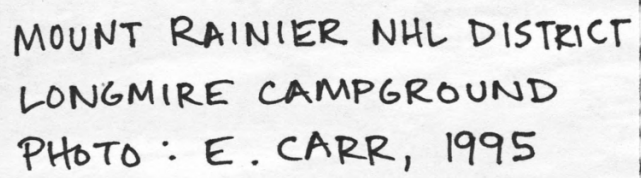 MOUNT RAINIER NHL DISTRICT
LONGMIRE CAMPGROUND
PHOTO : E. CARR, 1995